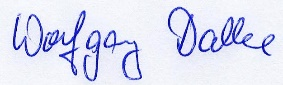 Wolfgang Dalke